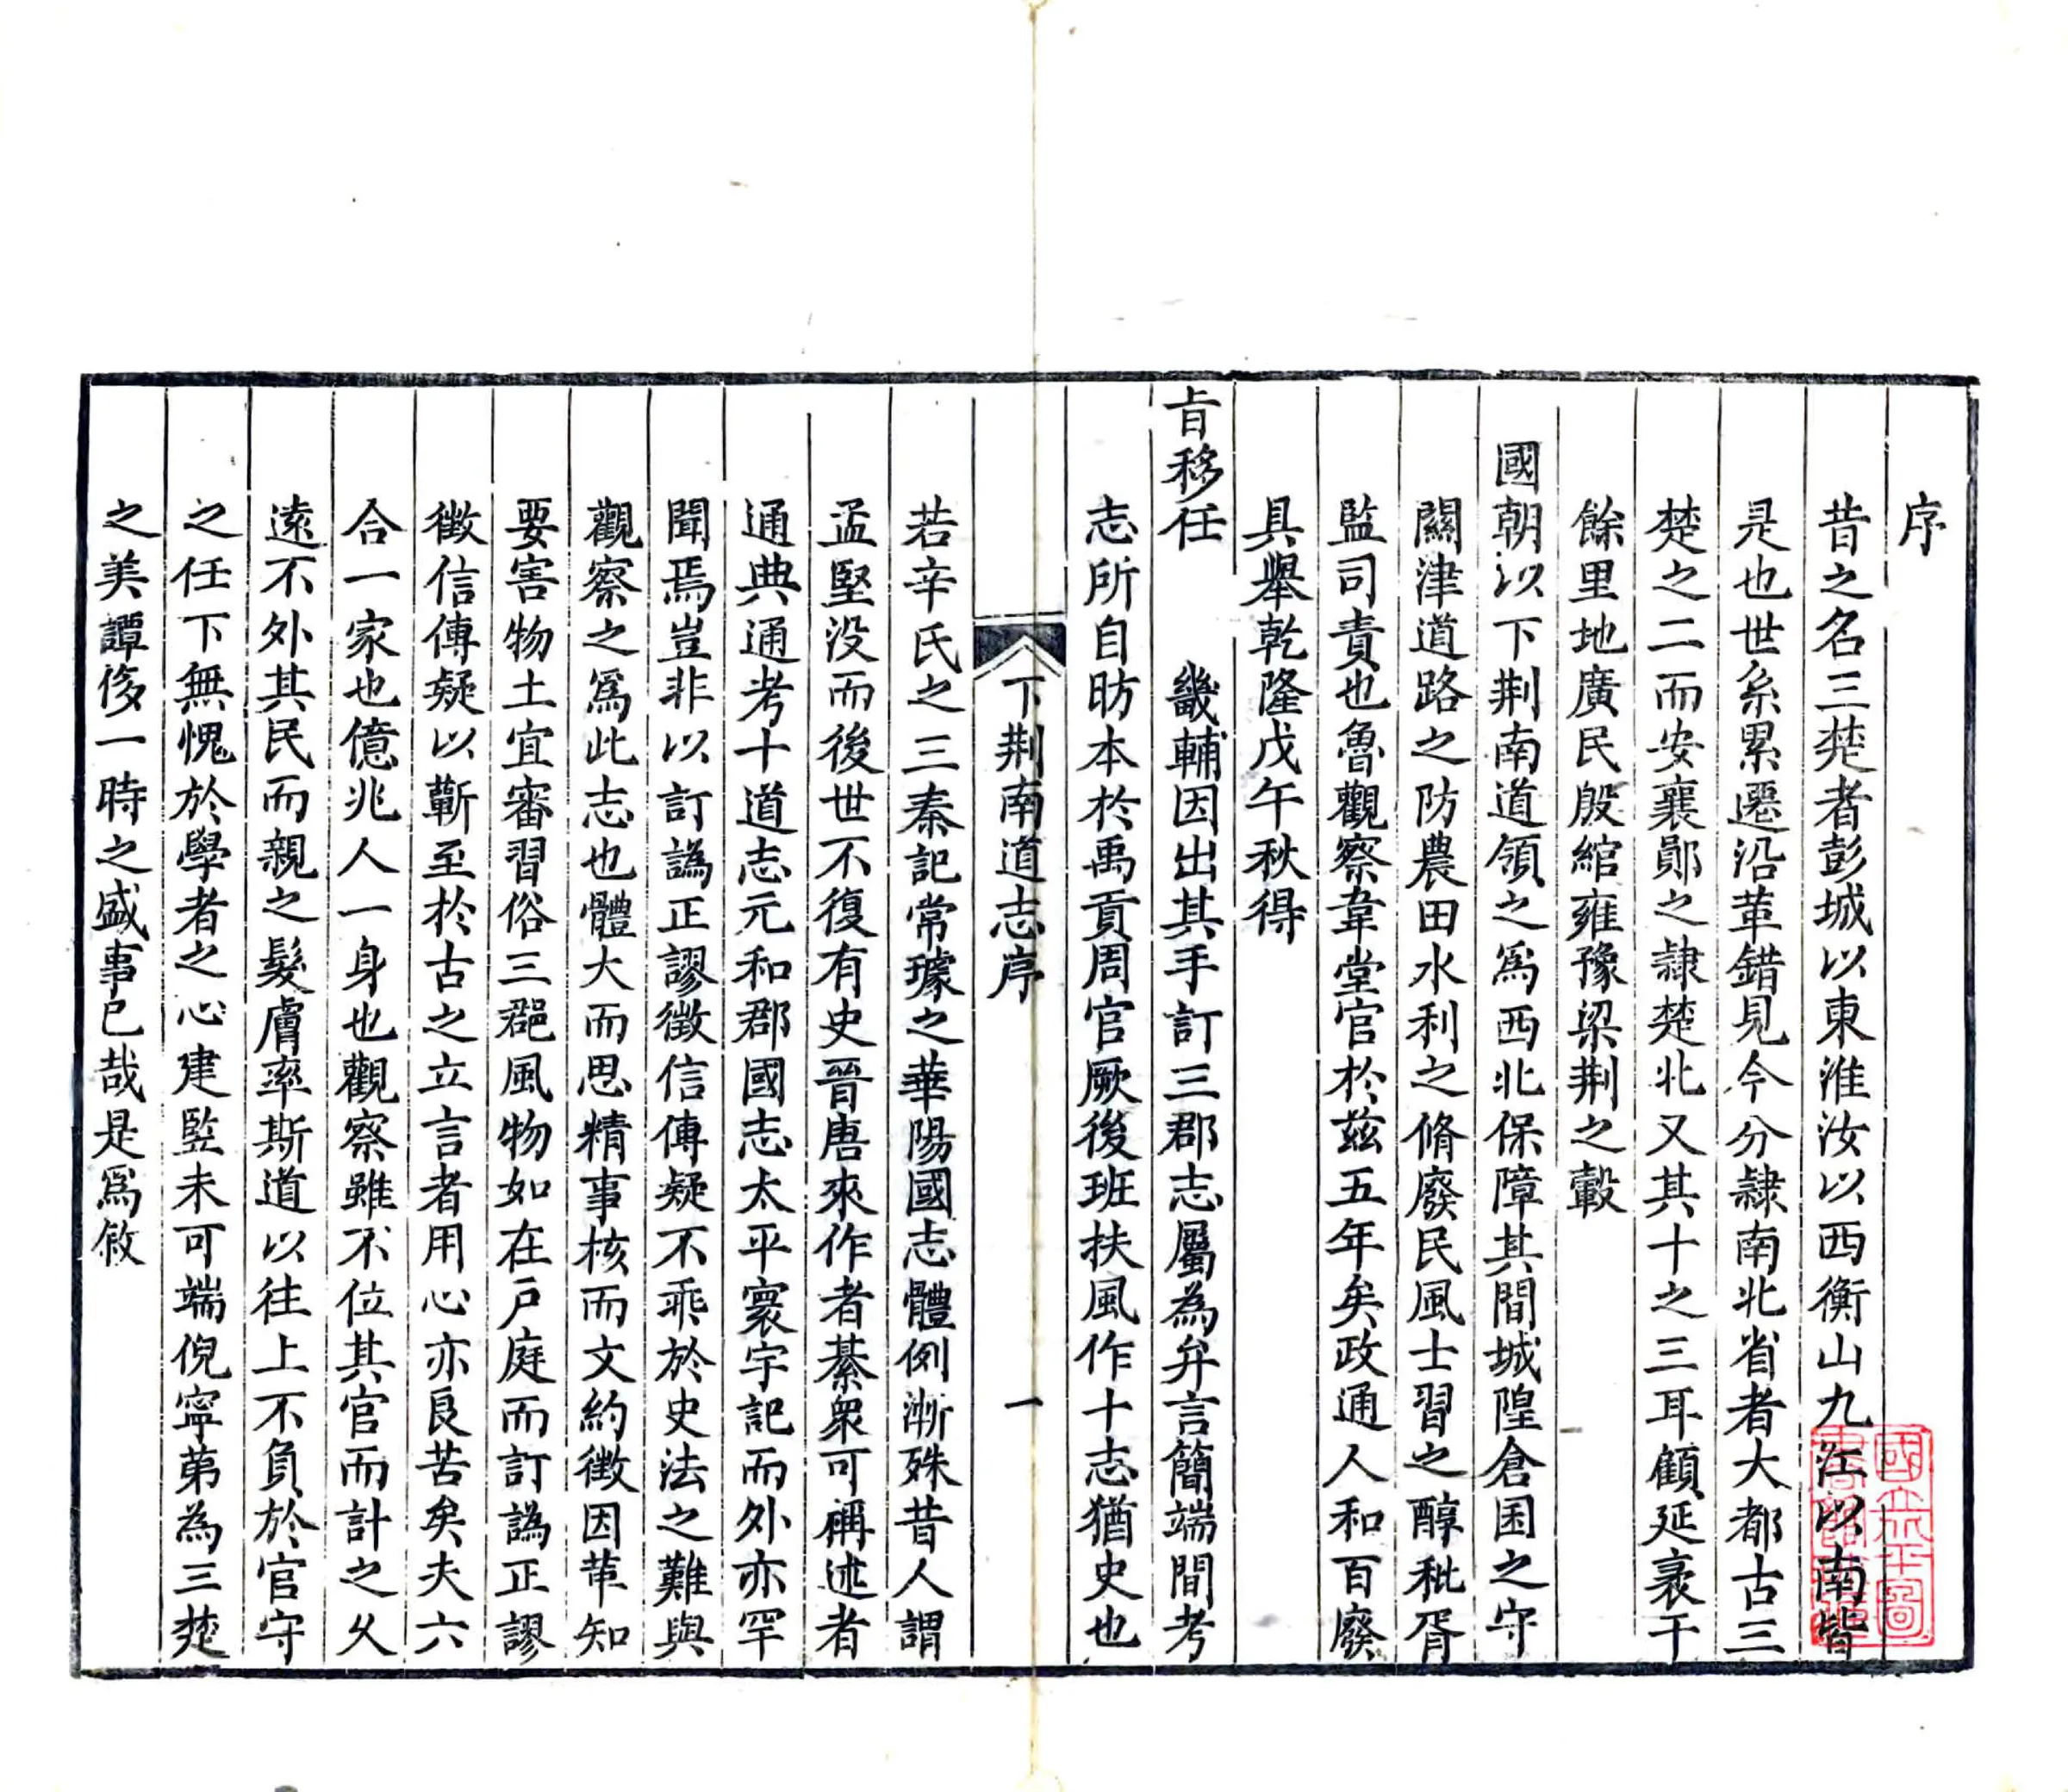 序
昔之名三楚者彭城以東淮汝以西衡山九江以南皆
是也世系累遷沿革錯見今分隷南北省者大都古三
楚之二而安襄鄖之隷楚北又其十之三耳顧延袤千
餘里地廣民殷綰雍豫梁荆之轂
國朝以下荆南道領之爲西北保障其間城隍倉囷之守
關津道路之防農田水利之脩廢民風士習之醇秕胥
監司責也魯觀察韋堂官於茲五年矣政通人和百廢
具舉乾隆戊午秋得
㫖移任 畿輔因出其手訂三郡志屬為弁言簡端間考
志所自昉本於禹貢周官厥後班扶風作十志猶史也
下荆南道志序 一
若辛氏之三秦記常璩之華陽國志體例漸殊昔人謂
孟堅没而後世不復有史晉唐來作者綦衆可稱述者
通典通考十道志元和郡國志太平寰宇記而外亦罕
聞焉豈非以訂譌正謬徵信傳疑不乖於史法之難與
觀察之爲此志也體大而思精事核而文約徵因革知
要害物土宜審習俗三郡風物如在戸庭而訂譌正謬
徵信傳疑以蘄至於古之立言者用心亦良苦矣夫六
合一家也億兆人一身也觀察雖不位其官而計之久
遠不外其民而親之髮膚率斯道以往上不負於官守
之任下無愧於學者之心建監未可端倪寧第為三楚
之美譚侈一時之盛事已哉是爲敘
國立北平圖書館藏